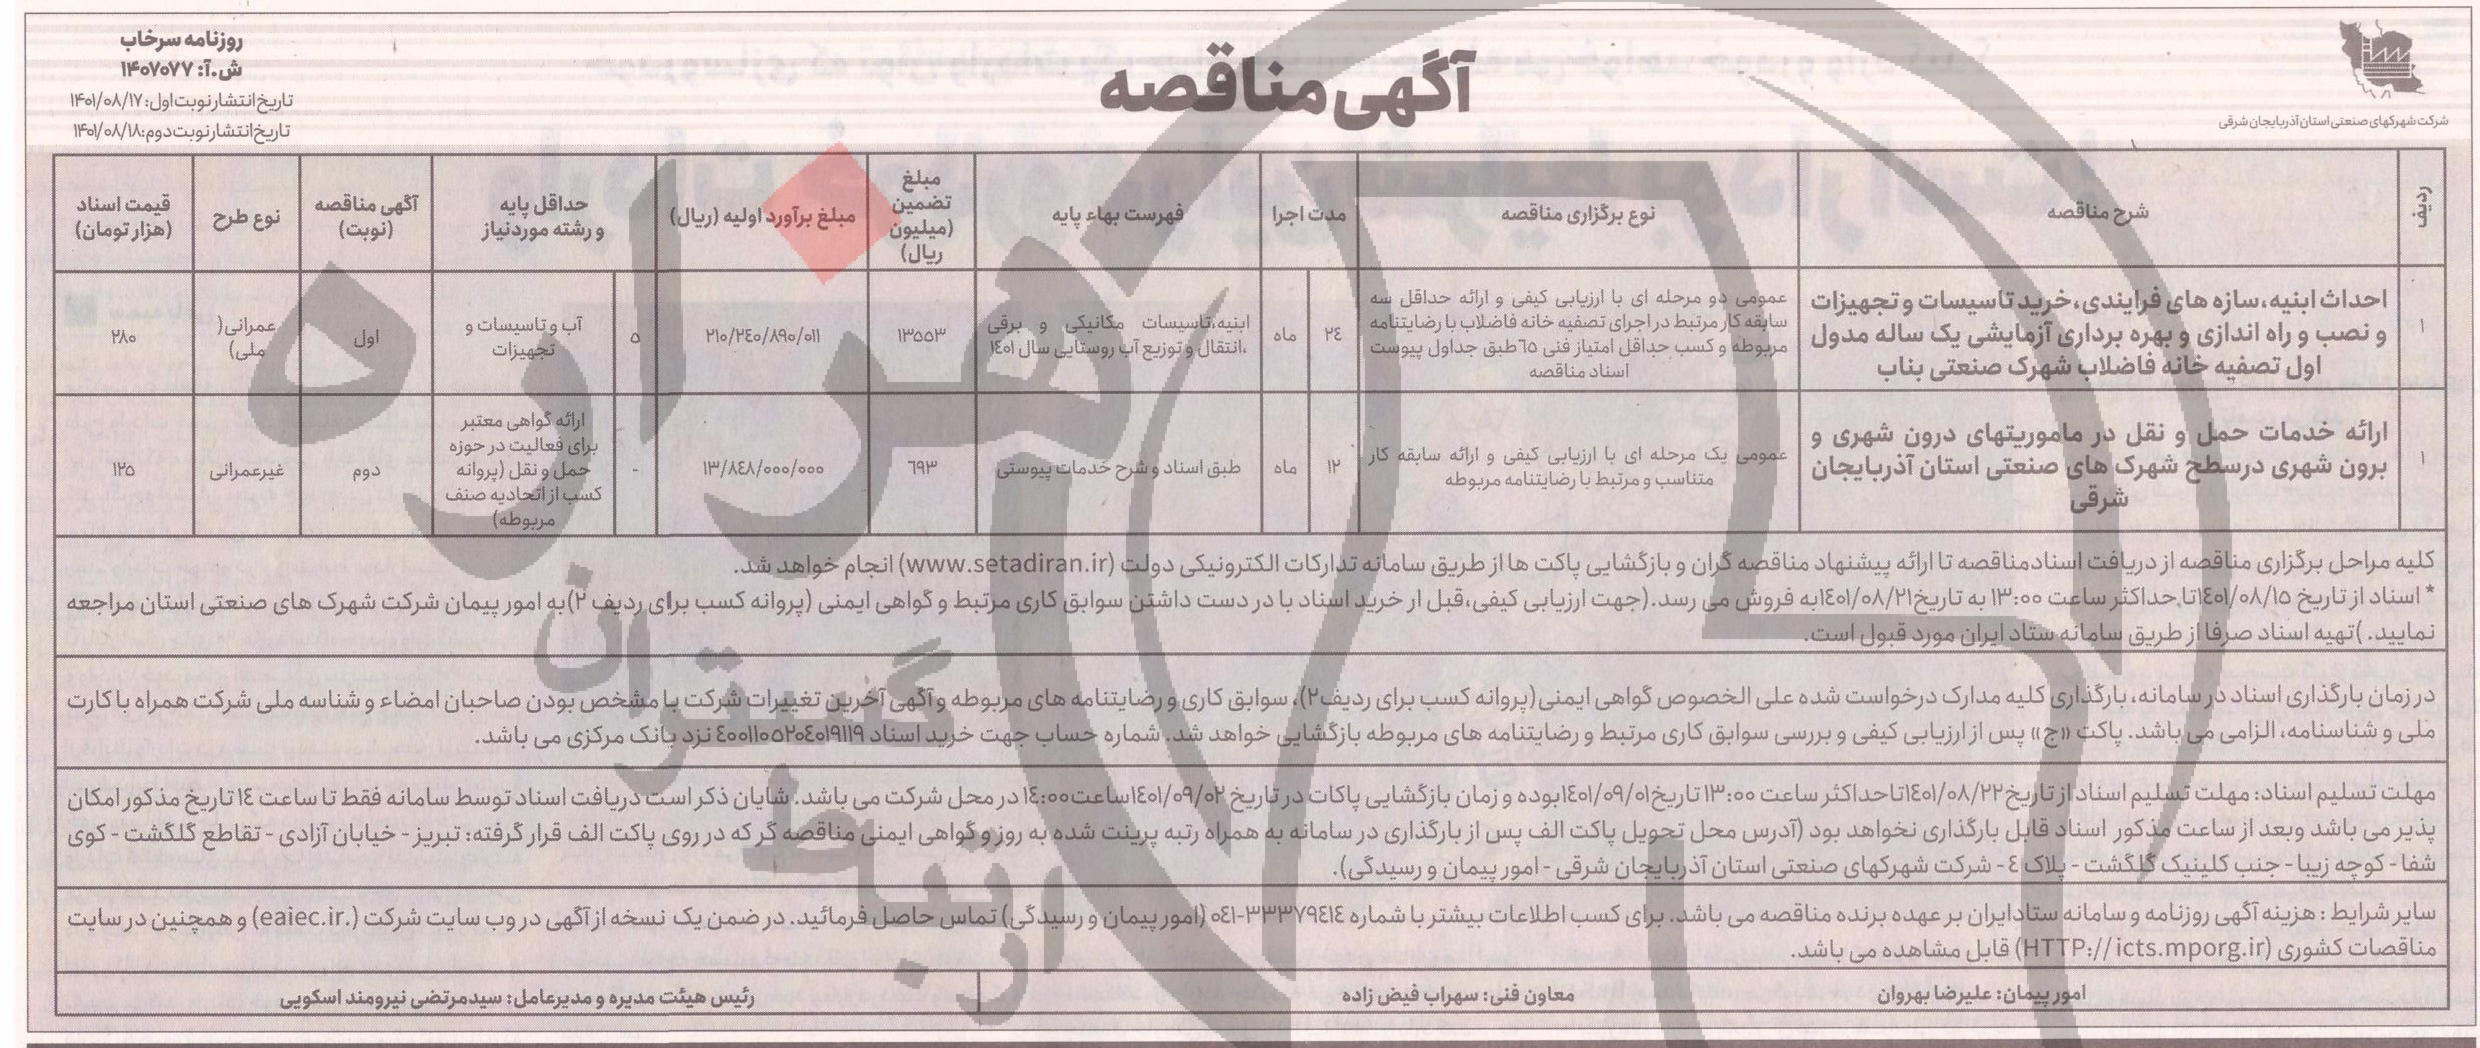 روزنامه سرخاب
ش.آ: ۱۴۰۷۰۷۷
تاریخ انتشار نوبت اول: ۱۴۰۱/۰۸/۱۷
تاریخ انتشار نوبت دوم: ۱۴۰۱/۰۸/۱۸
آگهی مناقصه
شرکت شهرکهای صنعتی استان آذربایجان شرقی
ردیف
شرح مناقصه
نوع برگزاری مناقصه
مدت اجرا
فهرست بهاء پایه
مبلغ
تضمین
(میلیون
ریال)
مبلغ برآورد اولیه (ریال)
حداقل پایه
و رشته موردنیاز
آگهی مناقصه
(نوبت)
نوع طرح
قیمت اسناد
(هزار تومان)
۱
احداث ابنیه،سازه های فرایندی،خرید تاسیسات و تجهیزات
و نصب و راه اندازی و بهره برداری آزمایشی یک ساله مدول
اول تصفیه خانه فاضلاب شهرک صنعتی بناب
عمومی دو مرحله ای با ارزیابی کیفی و ارائه حداقل سه
سابقه کار مرتبط در اجرای تصفیه خانه فاضلاب با رضایتنامه
مربوطه و کسب حداقل امتیاز فنی ٦٥طبق جداول پیوست
اسناد مناقصه
٢٤
ماه
ابنیه،تاسیسات مکانیکی و برقی
،انتقال و توزیع آب روستایی سال ١٤٠١
۱۳۵۵۳
۲۱۰/۲٤۰/۸۹۰/۰۱۱
۵
آب و تاسیسات و
تجهیزات
اول
عمرانی(
ملی)
۲۸۰
۱
ارائه خدمات حمل و نقل در ماموریتهای درون شهری و
برون شهری درسطح شهرک های صنعتی استان آذربایجان
شرقی
عمومی یک مرحله ای با ارزیابی کیفی و ارائه سابقه کار
متناسب و مرتبط با رضایتنامه مربوطه
۱۲
ماه
طبق اسناد و شرح خدمات پیوستی
٦۹۳
۱۳/۸٤۸/۰۰۰/۰۰۰
-
ارائه گواهی معتبر
برای فعالیت در حوزه
حمل و نقل (پروانه
کسب از اتحادیه صنف
مربوطه)
دوم
غیرعمرانی
۱۲۵
کلیه مراحل برگزاری مناقصه از دریافت اسنادمناقصه تا ارائه پیشنهاد مناقصه گران و بازگشایی پاکت ها از طریق سامانه تدارکات الکترونیکی دولت (www.setadiran.ir) انجام خواهد شد.
* اسناد از تاریخ ١٤٠١/٠٨/١٥تا حداکثر ساعت ۱۳:۰۰ به تاریخ١٤٠١/٠٨/٢١به فروش می رسد.(جهت ارزیابی کیفی،قبل ار خرید اسناد با در دست داشتن سوابق کاری مرتبط و گواهی ایمنی (پروانه کسب برای ردیف ۲)به امور پیمان شرکت شهرک های صنعتی استان مراجعه
نمایید.)تهیه اسناد صرفا از طریق سامانه ستاد ایران مورد قبول است.
در زمان بارگذاری اسناد در سامانه، بارگذاری کلیه مدارک درخواست شده علی الخصوص گواهی ایمنی(پروانه کسب برای ردیف۲)، سوابق کاری و رضایتنامه های مربوطه و آگهی آخرین تغییرات شرکت با مشخص بودن صاحبان امضاء و شناسه ملی شرکت همراه با کارت
ملی و شناسنامه، الزامی می باشد. پاکت «ج» پس از ارزیابی کیفی و بررسی سوابق کاری مرتبط و رضایتنامه های مربوطه بازگشایی خواهد شد. شماره حساب جهت خرید اسناد ٤٠٠١١٠٥٢٠٤٠١٩١١٩ نزد بانک مرکزی می باشد.
مهلت تسلیم اسناد: مهلت تسلیم اسناد از تاریخ١٤٠١/٠٨/٢٢تاحداکثر ساعت ۱۳:۰۰ تاریخ١٤٠١/٠٩/٠١بوده و زمان بازگشایی پاکات در تاریخ ١٤٠١/٠٩/٠٢ساعت١٤:٠٠ در محل شرکت می باشد. شایان ذکر است دریافت اسناد توسط سامانه فقط تا ساعت ١٤ تاریخ مذکور امکان
پذیر می باشد وبعد از ساعت مذکور اسناد قابل بارگذاری نخواهد بود (آدرس محل تحویل پاکت الف پس از بارگذاری در سامانه به همراه رتبه پرینت شده به روز و گواهی ایمنی مناقصه گر که در روی پاکت الف قرار گرفته: تبریز - خیابان آزادی - تقاطع گلگشت - کوی
شفا - کوچه زیبا - جنب کلینیک گلگشت - پلاک ٤ - شرکت شهرکهای صنعتی استان آذربایجان شرقی - امور پیمان و رسیدگی).
سایر شرایط : هزینه آگهی روزنامه و سامانه ستادایران بر عهده برنده مناقصه می باشد. برای کسب اطلاعات بیشتر با شماره ٣٣٣٧٩٤١٤-٠٤١ (امور پیمان و رسیدگی) تماس حاصل فرمائید. در ضمن یک نسخه از آگهی در وب سایت شرکت (.eaiec.ir) و همچنین در سایت
مناقصات کشوری (HTTP://icts.mporg.ir) قابل مشاهده می باشد.
امور پیمان: علیرضا بهروان
معاون فنی: سهراب فیض زاده
رئیس هیئت مدیره و مدیرعامل: سیدمرتضی نیرومند اسکویی
هزاره
ارتباط
گستران